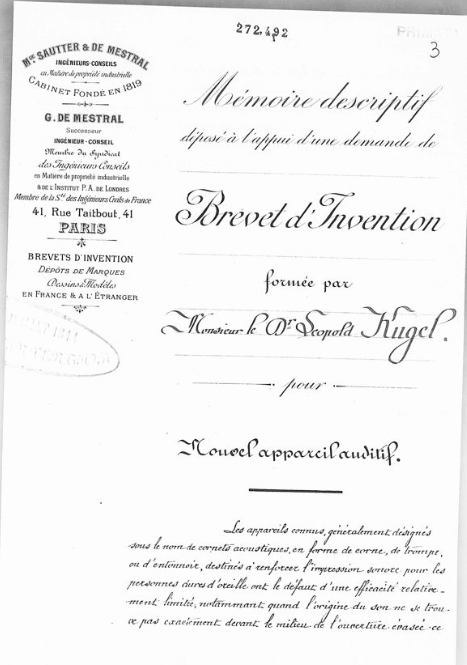 272.492
3
Mce SAUTTER & DE MESTRAL
INGÉNIEURS-CONSEILS
en Matière de propriété industrielle
CABINET FONDÉ EN 1819
G. DE MESTRAL
Successeur
INGÉNIEUR-CONSEIL
Membre du Syndicat
des Ingénieurs Conseils
en Matière de propriété industrielle
& DE L'INSTITUT P. A. DE LONDRES
Membre de la Sté des Ingénieurs Civils de France
41, Rue Taitbout, 41
PARIS
BREVETS D'INVENTION
DÉPÔTS DE MARQUES
Dessins & Modèles
EN FRANCE & A L'ÉTRANGER
Mémoire descriptif
déposé à l'appui d'une demande de
Brevet d'Invention
formée par
Monsieur le Dr Leopold Kugel.
pour
Nouvel appareil auditif.
Les appareils connus, généralement désignés
sous le nom de cornets acoustiques, en forme de corne, de trompe,
ou d'entonnoir, destinés à renforcer l'impression sonore pour les
personnes dures d'oreille ont le défaut d'une efficacité relative-
ment limitée, notamment quand l'origine du son ne se trou-
ve pas exactement devant le milieu de l'ouverture évasée ce